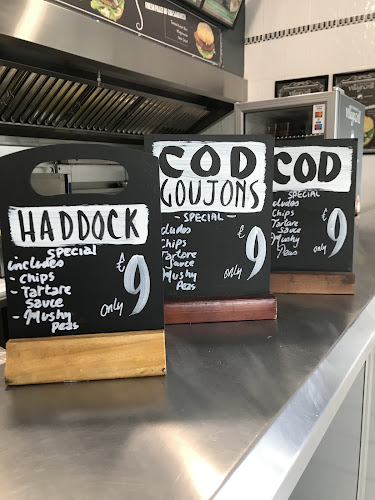 HADDOCK
Special
includes
- Chips
- Tartare
Sauce
- Mushy
Peas
only £9
COD
GOUJONS
- SPECIAL -
cludes
Chips
Tartare
Sauce
Mushy
Peas
only £9
COD
SPECIAL
cludes
Chips
Tartare
Sauce
Mushy
Peas
only £9